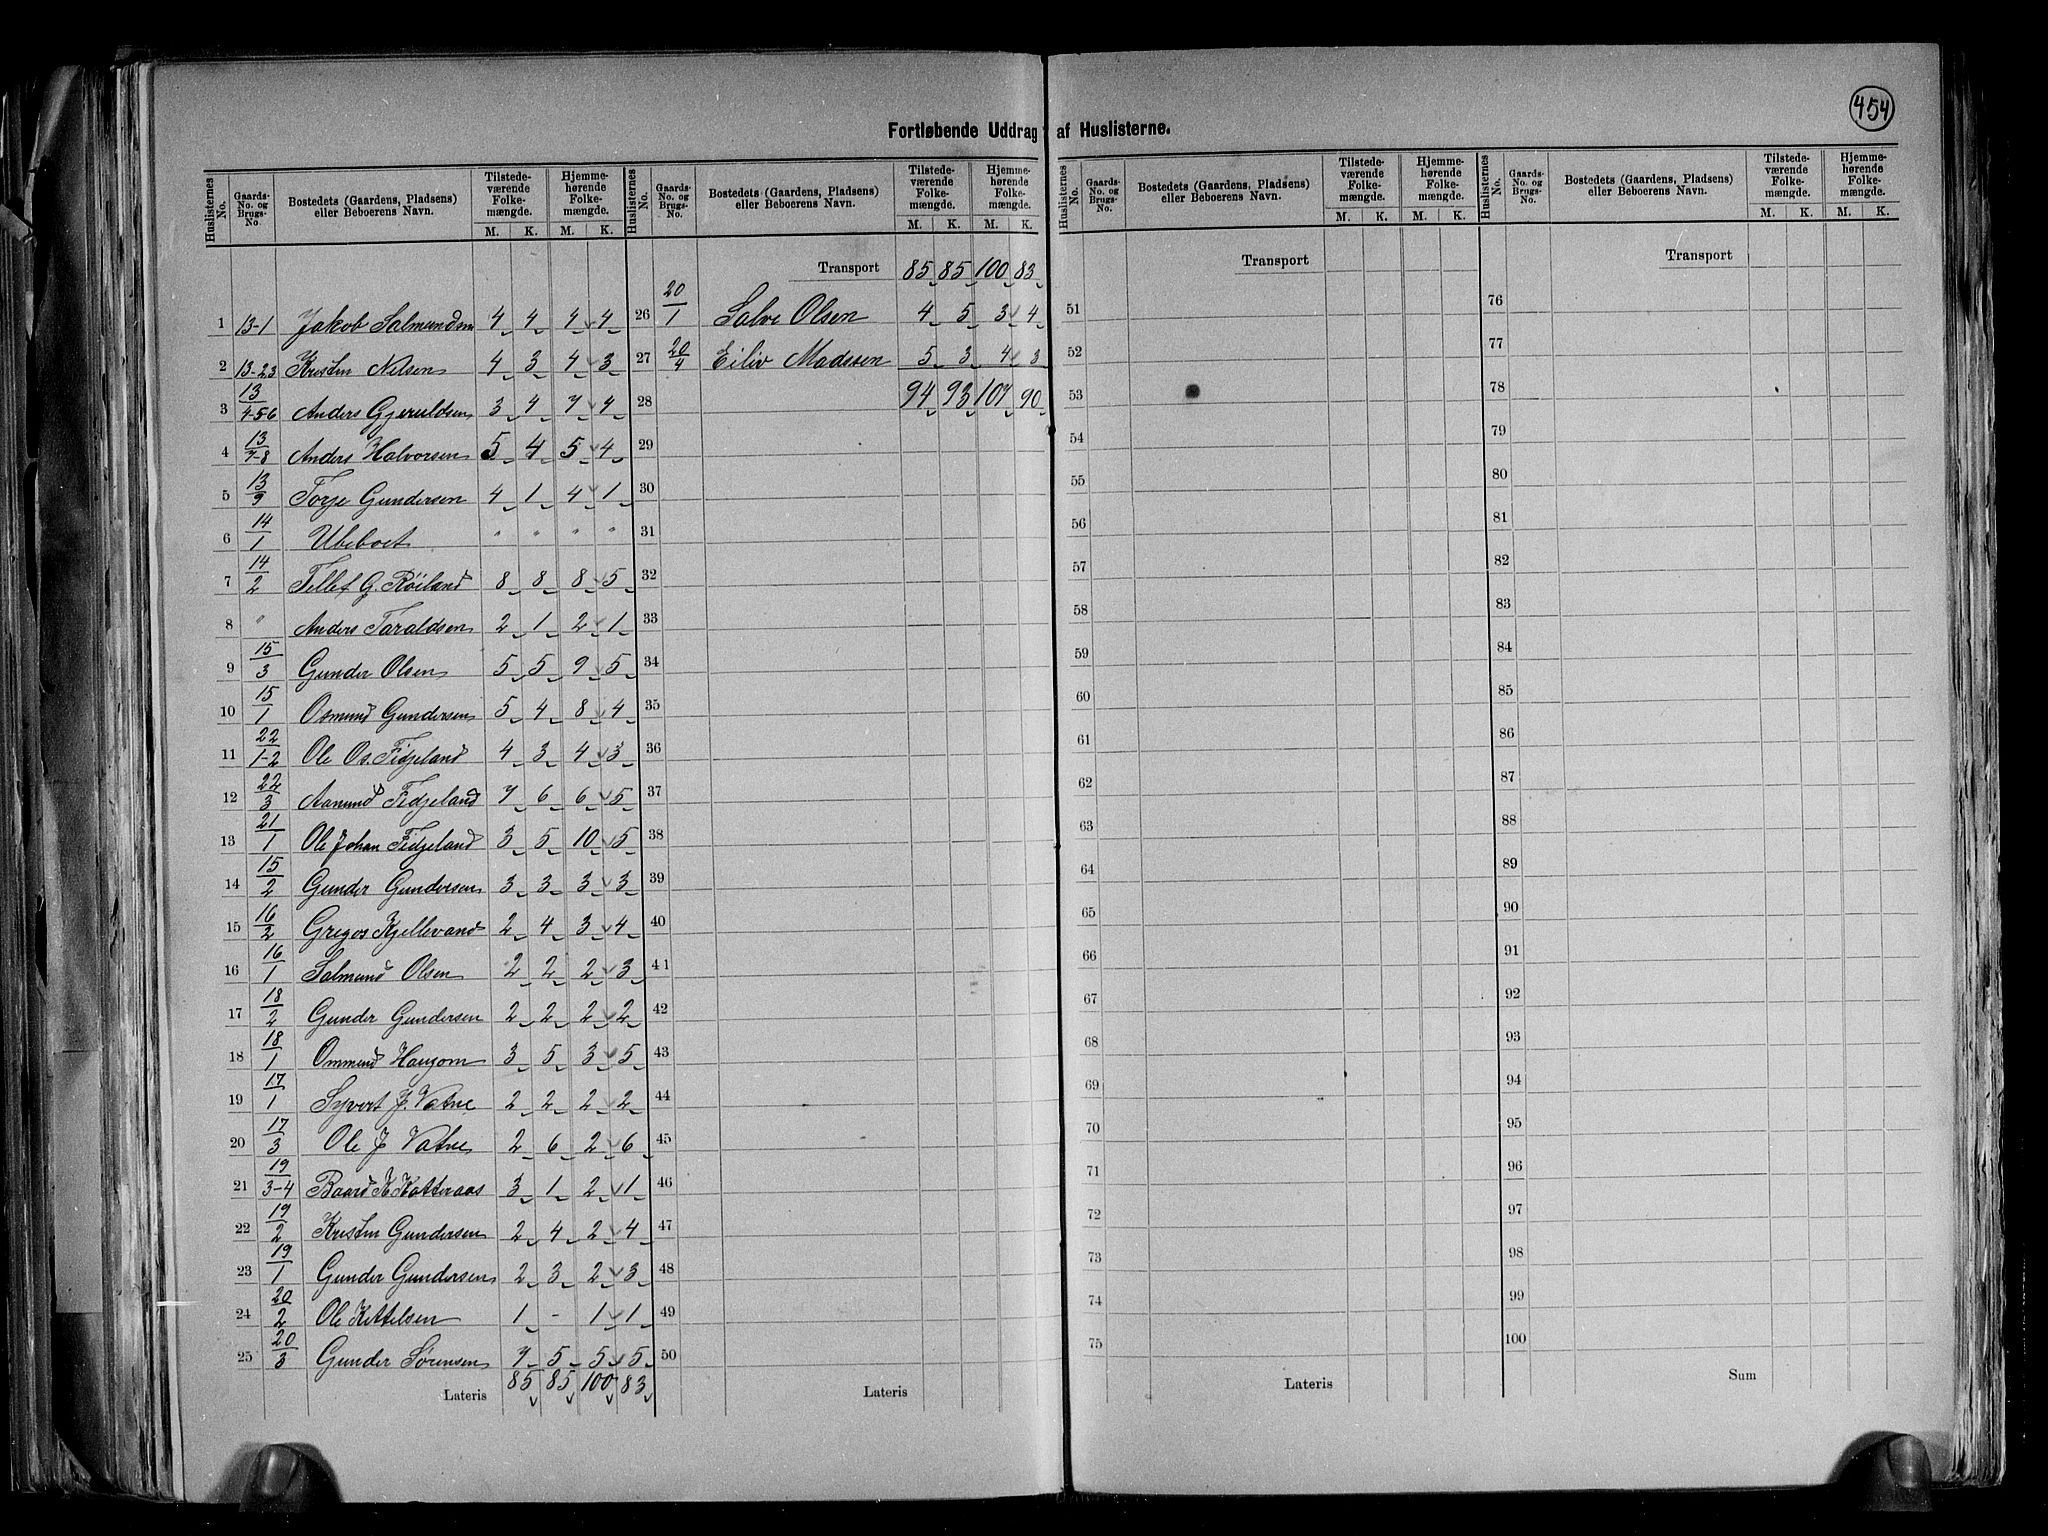 454
Fortløbende Uddrag af Huslisterne.
Huslisternes No. Gaards- No. og Brugs- No. Bostedets (Gaardens, Pladsens) eller Beboerens Navn. Tilstede- værende Folke- mængde. M. K. Hjemme- hørende Folke- mængde. M. K.
1 13-1 Jakob Salmundsen 4 4 4 4
2 13-23 Kristen Nilsen 4 3 4 3
3 13/4-5-6 Anders Gjeruldsen 3 4 7 4
4 13/7-8 Anders Halvorsen 5 4 5 4
5 13/9 Torje Gundersen 4 1 4 1
6 14/1 Ubeboet " " " "
7 14/2 Tellef G. Röiland 8 8 8 5
8 " Anders Taraldsen 2 1 2 1
9 15/3 Gunder Olsen 5 5 9 5
10 15/1 Osmund Gundersen 5 4 8 4
11 22/1-2 Ole Os. Fidjeland 4 3 4 3
12 22/3 Aanund Fidjeland 7 6 6 5
13 21/1 Ole Johan Fidjeland 3 5 10 5
14 15/2 Gunder Gundersen 3 3 3 3
15 16/2 Gregos Kjellevand 2 4 3 4
16 16/1 Salmund Olsen 2 2 2 3
17 18/2 Gunder Gundersen 2 2 2 2
18 18/1 Ommund Haugom 3 5 3 5
19 17/1 Syvert J. Vatne 2 2 2 2
20 17/3 Ole J Vatne 2 6 2 6
21 19/3-4 Baard K Katteraas 3 1 2 1
22 19/2 Kristen Gundersen 2 4 2 4
23 19/1 Gunder Gundersen 2 3 2 3
24 20/2 Ole Kittelsen 1 - 1 1
25 20/3 Gunder Sørensen 7 5 5 5
Lateris 85 85 100 83
Huslisternes No. Gaards- No. og Brugs- No. Bostedets (Gaardens, Pladsens) eller Beboerens Navn. Tilstede- værende Folke- mængde. M. K. Hjemme- hørende Folke- mængde. M. K.
Transport 85 85 100 83
26 20/1 Salve Olsen 4 5 3 4
27 20/4 Eiliv Madssen 5 3 4 3
28 94 93 107 90
29
30
31
32
33
34
35
36
37
38
39
40
41
42
43
44
45
46
47
48
49
50
Lateris
Huslisternes No. Gaards- No. og Brugs- No. Bostedets (Gaardens, Pladsens) eller Beboerens Navn. Tilstede- værende Folke- mængde. M. K. Hjemme- hørende Folke- mængde. M. K.
Transport
51
52
53
54
55
56
57
58
59
60
61
62
63
64
65
66
67
68
69
70
71
72
73
74
75
Lateris
Huslisternes No. Gaards- No. og Brugs- No. Bostedets (Gaardens, Pladsens) eller Beboerens Navn. Tilstede- værende Folke- mængde. M. K. Hjemme- hørende Folke- mængde. M. K.
Transport
76
77
78
79
80
81
82
83
84
85
86
87
88
89
90
91
92
93
94
95
96
97
98
99
100
Sum